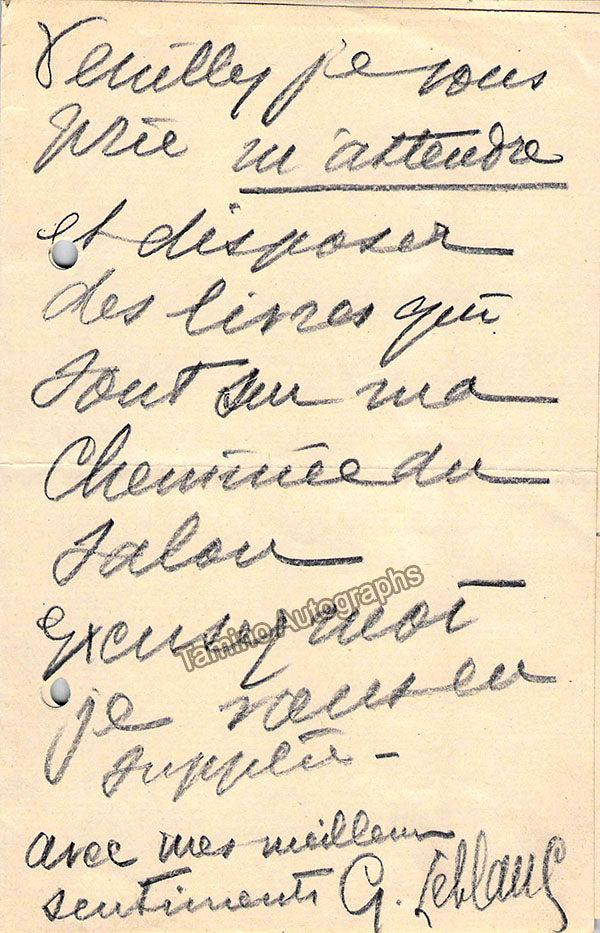 Veuillez je vous
prie m'attendre
et disposer
des livres qui
sont sur ma
Cheminée du
salon
Excusez moi
je vous en
supplie -
avec mes meilleurs
sentiments G. Leblanc
Tamino Autographs